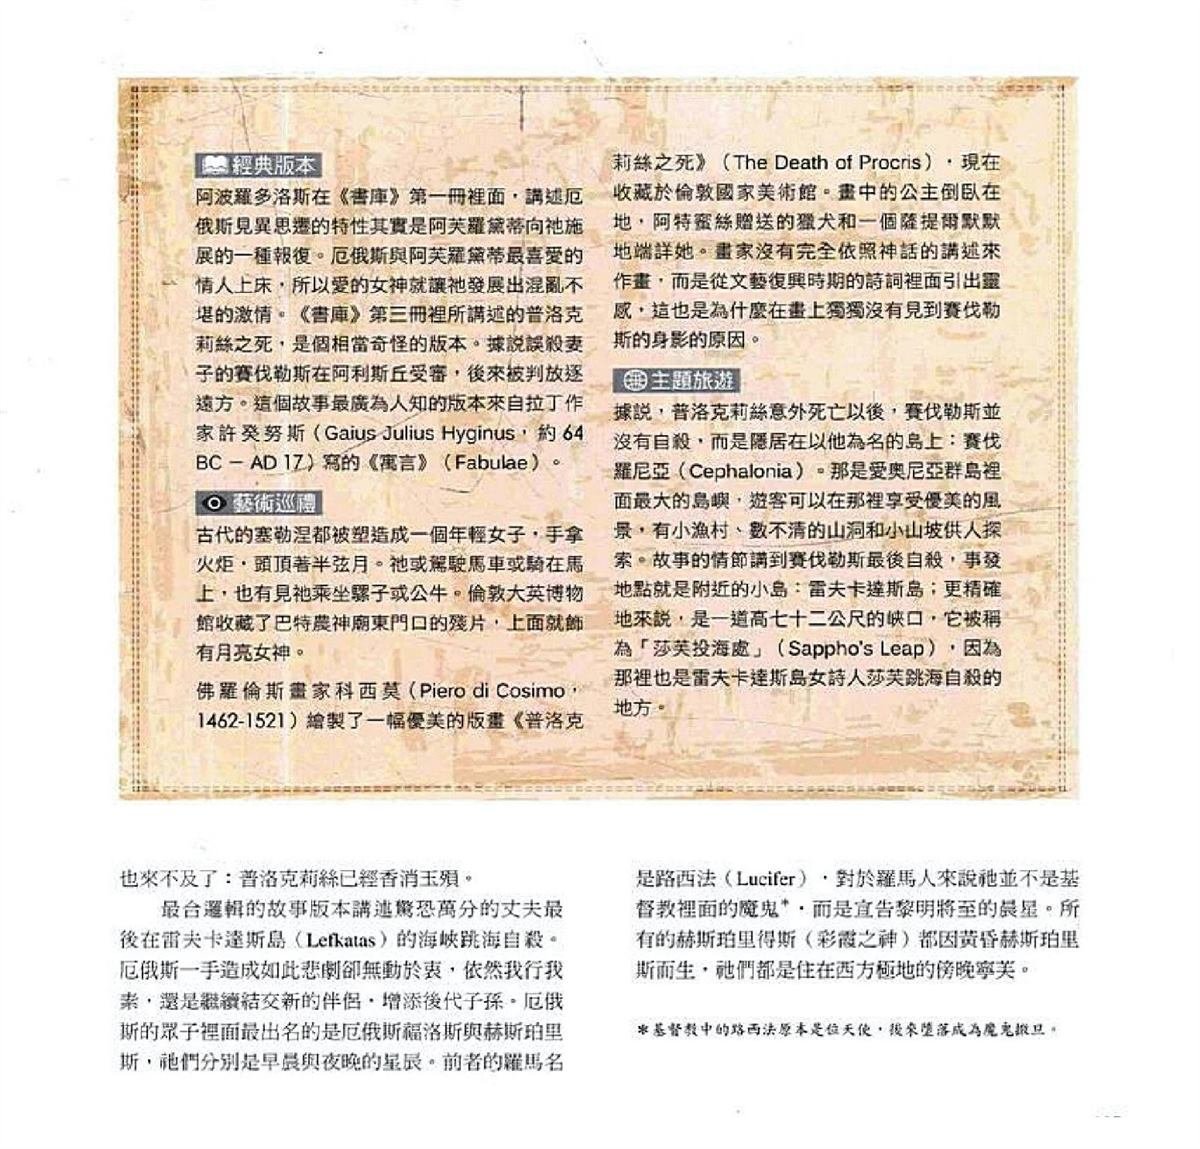 經典版本
阿波羅多洛斯在《書庫》第一冊裡面，講述厄
俄斯見異思遷的特性其實是阿芙羅黛蒂向祂施
展的一種報復。厄俄斯與阿芙羅黛蒂最喜愛的
情人上床，所以愛的女神就讓祂發展出混亂不
堪的激情。《書庫》第三冊裡所講述的普洛克
莉絲之死，是個相當奇怪的版本。據說誤殺妻
子的賽伐勒斯在阿利斯丘受審，後來被判放逐
遠方。這個故事最廣為人知的版本來自拉丁作
家許癸努斯（Gaius Julius Hyginus，約64
BC － AD 17）寫的《寓言》（Fabulae）。
藝術巡禮
古代的塞勒涅都被塑造成一個年輕女子，手拿
火炬，頭頂著半弦月。祂或駕駛馬車或騎在馬
上，也有見祂乘坐騾子或公牛。倫敦大英博物
館收藏了巴特農神廟東門口的殘片，上面就飾
有月亮女神。
佛羅倫斯畫家科西莫（Piero di Cosimo，
1462-1521）繪製了一幅優美的版畫《普洛克
莉絲之死》（The Death of Procris），現在
收藏於倫敦國家美術館。畫中的公主倒臥在
地，阿特蜜絲贈送的獵犬和一個薩提爾默默
地端詳她。畫家沒有完全依照神話的講述來
作畫，而是從文藝復興時期的詩詞裡面引出靈
感，這也是為什麼在畫上獨獨沒有見到賽伐勒
斯的身影的原因。
主題旅遊
據說，普洛克莉絲意外死亡以後，賽伐勒斯並
沒有自殺，而是隱居在以他為名的島上：賽伐
羅尼亞（Cephalonia）。那是愛奧尼亞群島裡
面最大的島嶼，遊客可以在那裡享受優美的風
景，有小漁村、數不清的山洞和小山坡供人探
索。故事的情節講到賽伐勒斯最後自殺，事發
地點就是附近的小島：雷夫卡達斯島；更精確
地來說，是一道高七十二公尺的峽口，它被稱
為「莎芙投海處」（Sappho's Leap），因為
那裡也是雷夫卡達斯島女詩人莎芙跳海自殺的
地方。
也來不及了：普洛克莉絲已經香消玉殞。
最合邏輯的故事版本講述驚恐萬分的丈夫最
後在雷夫卡達斯島（Lefkatas）的海峽跳海自殺。
厄俄斯一手造成如此悲劇卻無動於衷，依然我行我
素，還是繼續結交新的伴侶，增添後代子孫。厄俄
斯的眾子裡面最出名的是厄俄斯福洛斯與赫斯珀里
斯，祂們分別是早晨與夜晚的星辰。前者的羅馬名
是路西法（Lucifer），對於羅馬人來說祂並不是基
督教裡面的魔鬼*，而是宣告黎明將至的晨星。所
有的赫斯珀里得斯（彩霞之神）都因黃昏赫斯珀里
斯而生，祂們都是住在西方極地的傍晚寧芙。
*基督教中的路西法原本是位天使，後來墮落成為魔鬼撒旦。